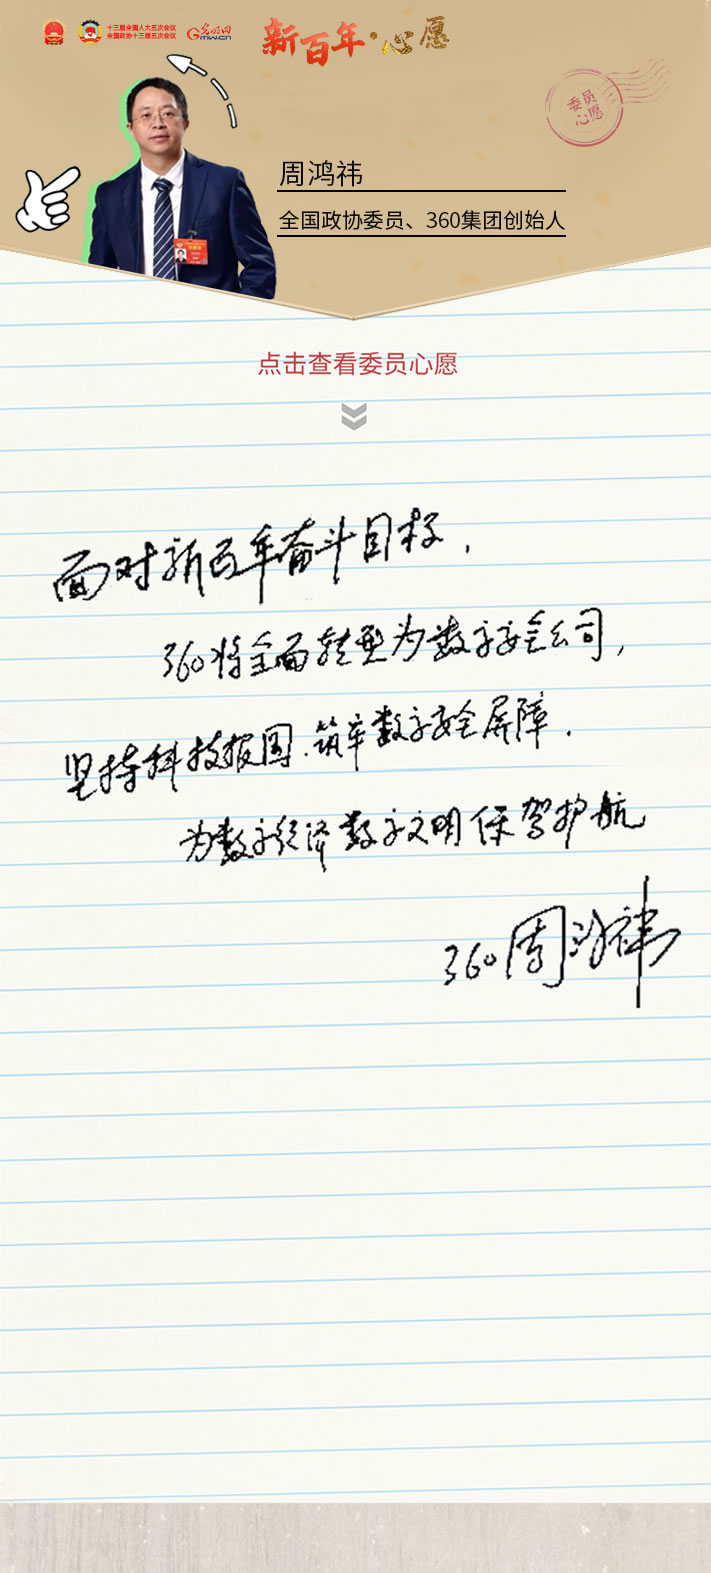 十三届全国人大五次会议
全国政协十三届五次会议
光明网
GMW.CN
新百年·心愿
委员
心愿
周鸿祎
全国政协委员、360集团创始人
点击查看委员心愿
面对新百年奋斗目标，
360将全面转型为数字安全公司，
坚持科技报国、筑牢数字安全屏障，
为数字经济数字文明保驾护航
360周鸿祎